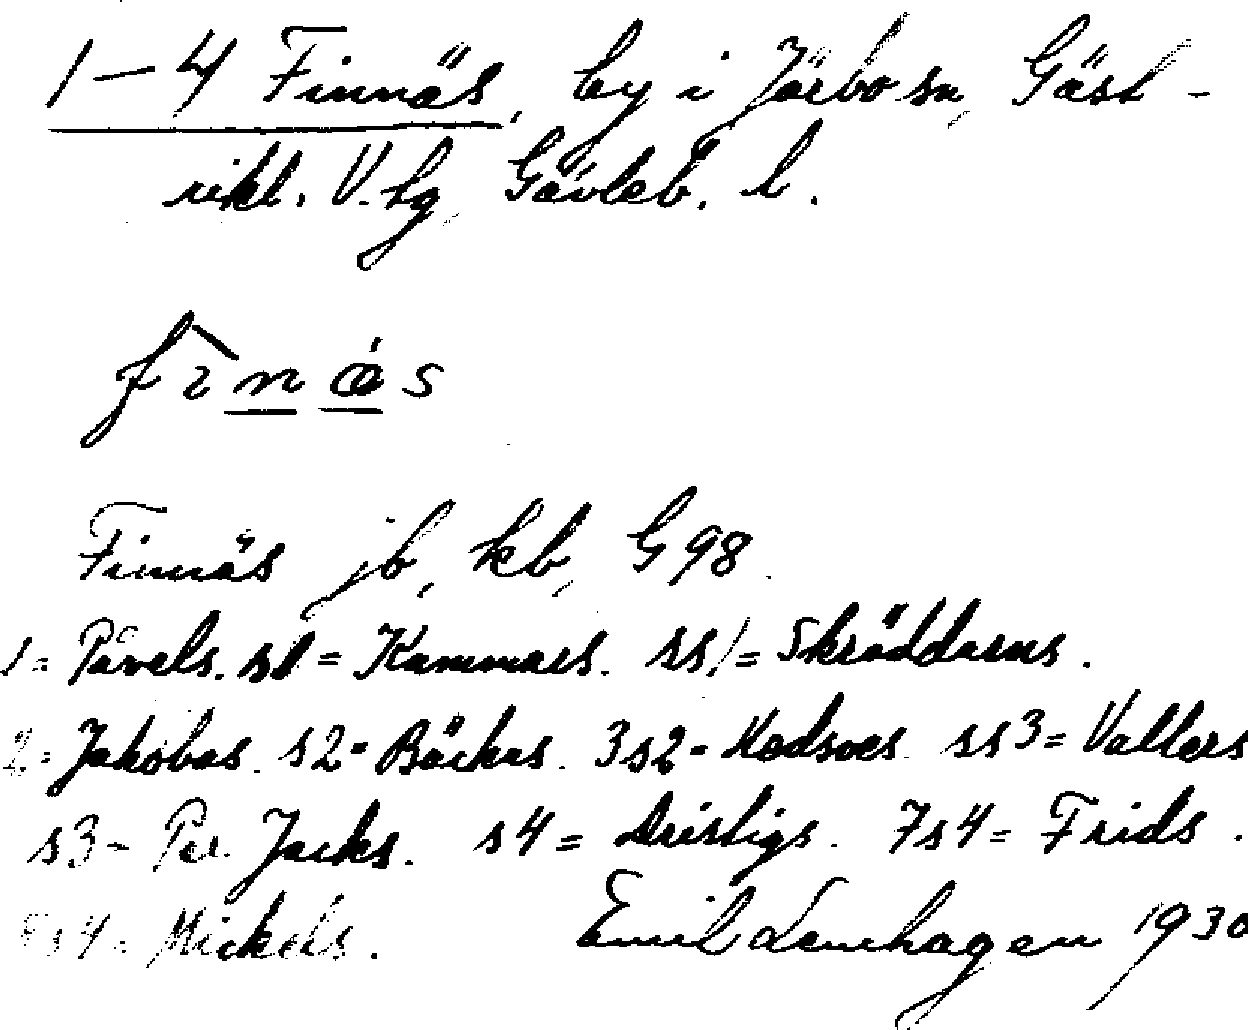 1-4 Finnäs, by i Järbo sn, Gäst-
rikl. V. tg, Gävleb. l.
Finnäs jb, kb, G 98.
1 = Påvels. s1 = Kammars. ss1 = Skräddarns.
2 = Jakobas. s2 = Bäckas. 3s2 = ss3 = Vallers
s3 = Per Jacks. s4 = Dristigs. 7s4 = Frids.
8s4 = Mickels. Emil Lenhagen 1930